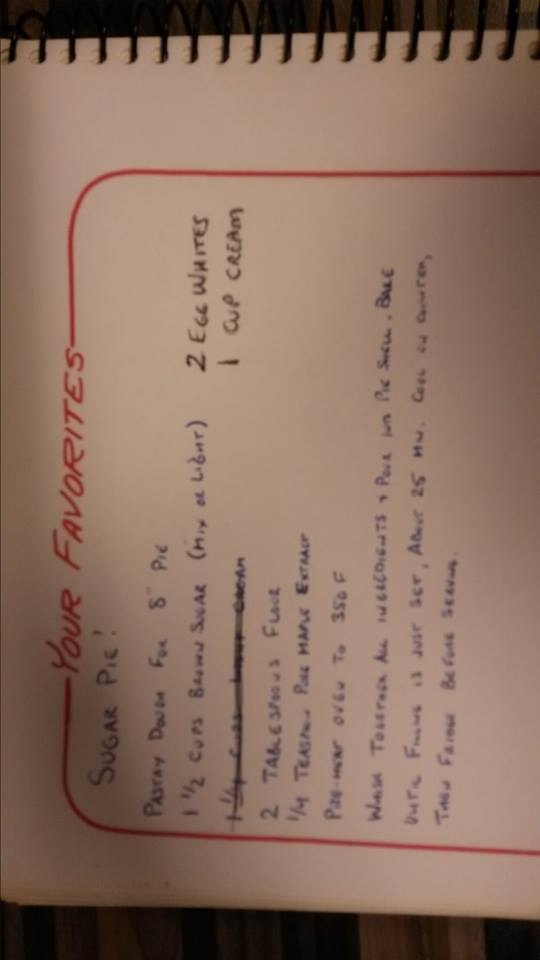 YOUR FAVORITES
SUGAR PIE!
PASTRY DOUGH FOR 8" PIE
1 1/2 CUPS BROWN SUGAR (MIX OR LIGHT)
2 EGG WHITES
1 1/4 CUPS CREAM
1 CUP CREAM
2 TABLESPOONS FLOUR
1/4 TEASPOON PURE MAPLE EXTRACT
PRE-HEAT OVEN TO 350 F
WHISK TOGETHER ALL INGREDIENTS & POUR INTO PIE SHELL. BAKE
UNTIL FILLING IS JUST SET, ABOUT 25 MIN. COOL ON COUNTER,
THEN FRIDGE BEFORE SERVING.